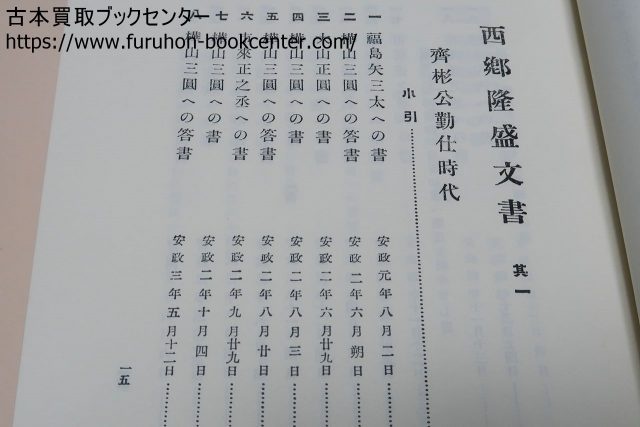 古本買取ブックセンター
https://www.furuhon-bookcenter.com/
西鄕隆盛文書 其一
齊彬公勤仕時代
小引
一 福島矢三太への書 安政元年八月二日
二 樺山三圓への答書 安政二年六月朔日
三 大山正圓への書 安政二年六月廿九日
四 樺山三圓への書 安政二年八月三日
五 樺山三圓への答書 安政二年八月廿日
六 來正之丞への書 安政二年九月廿九日
七 樺山三圓への書 安政二年十月四日
八 樺山三圓への答書 安政三年五月十二日
一五